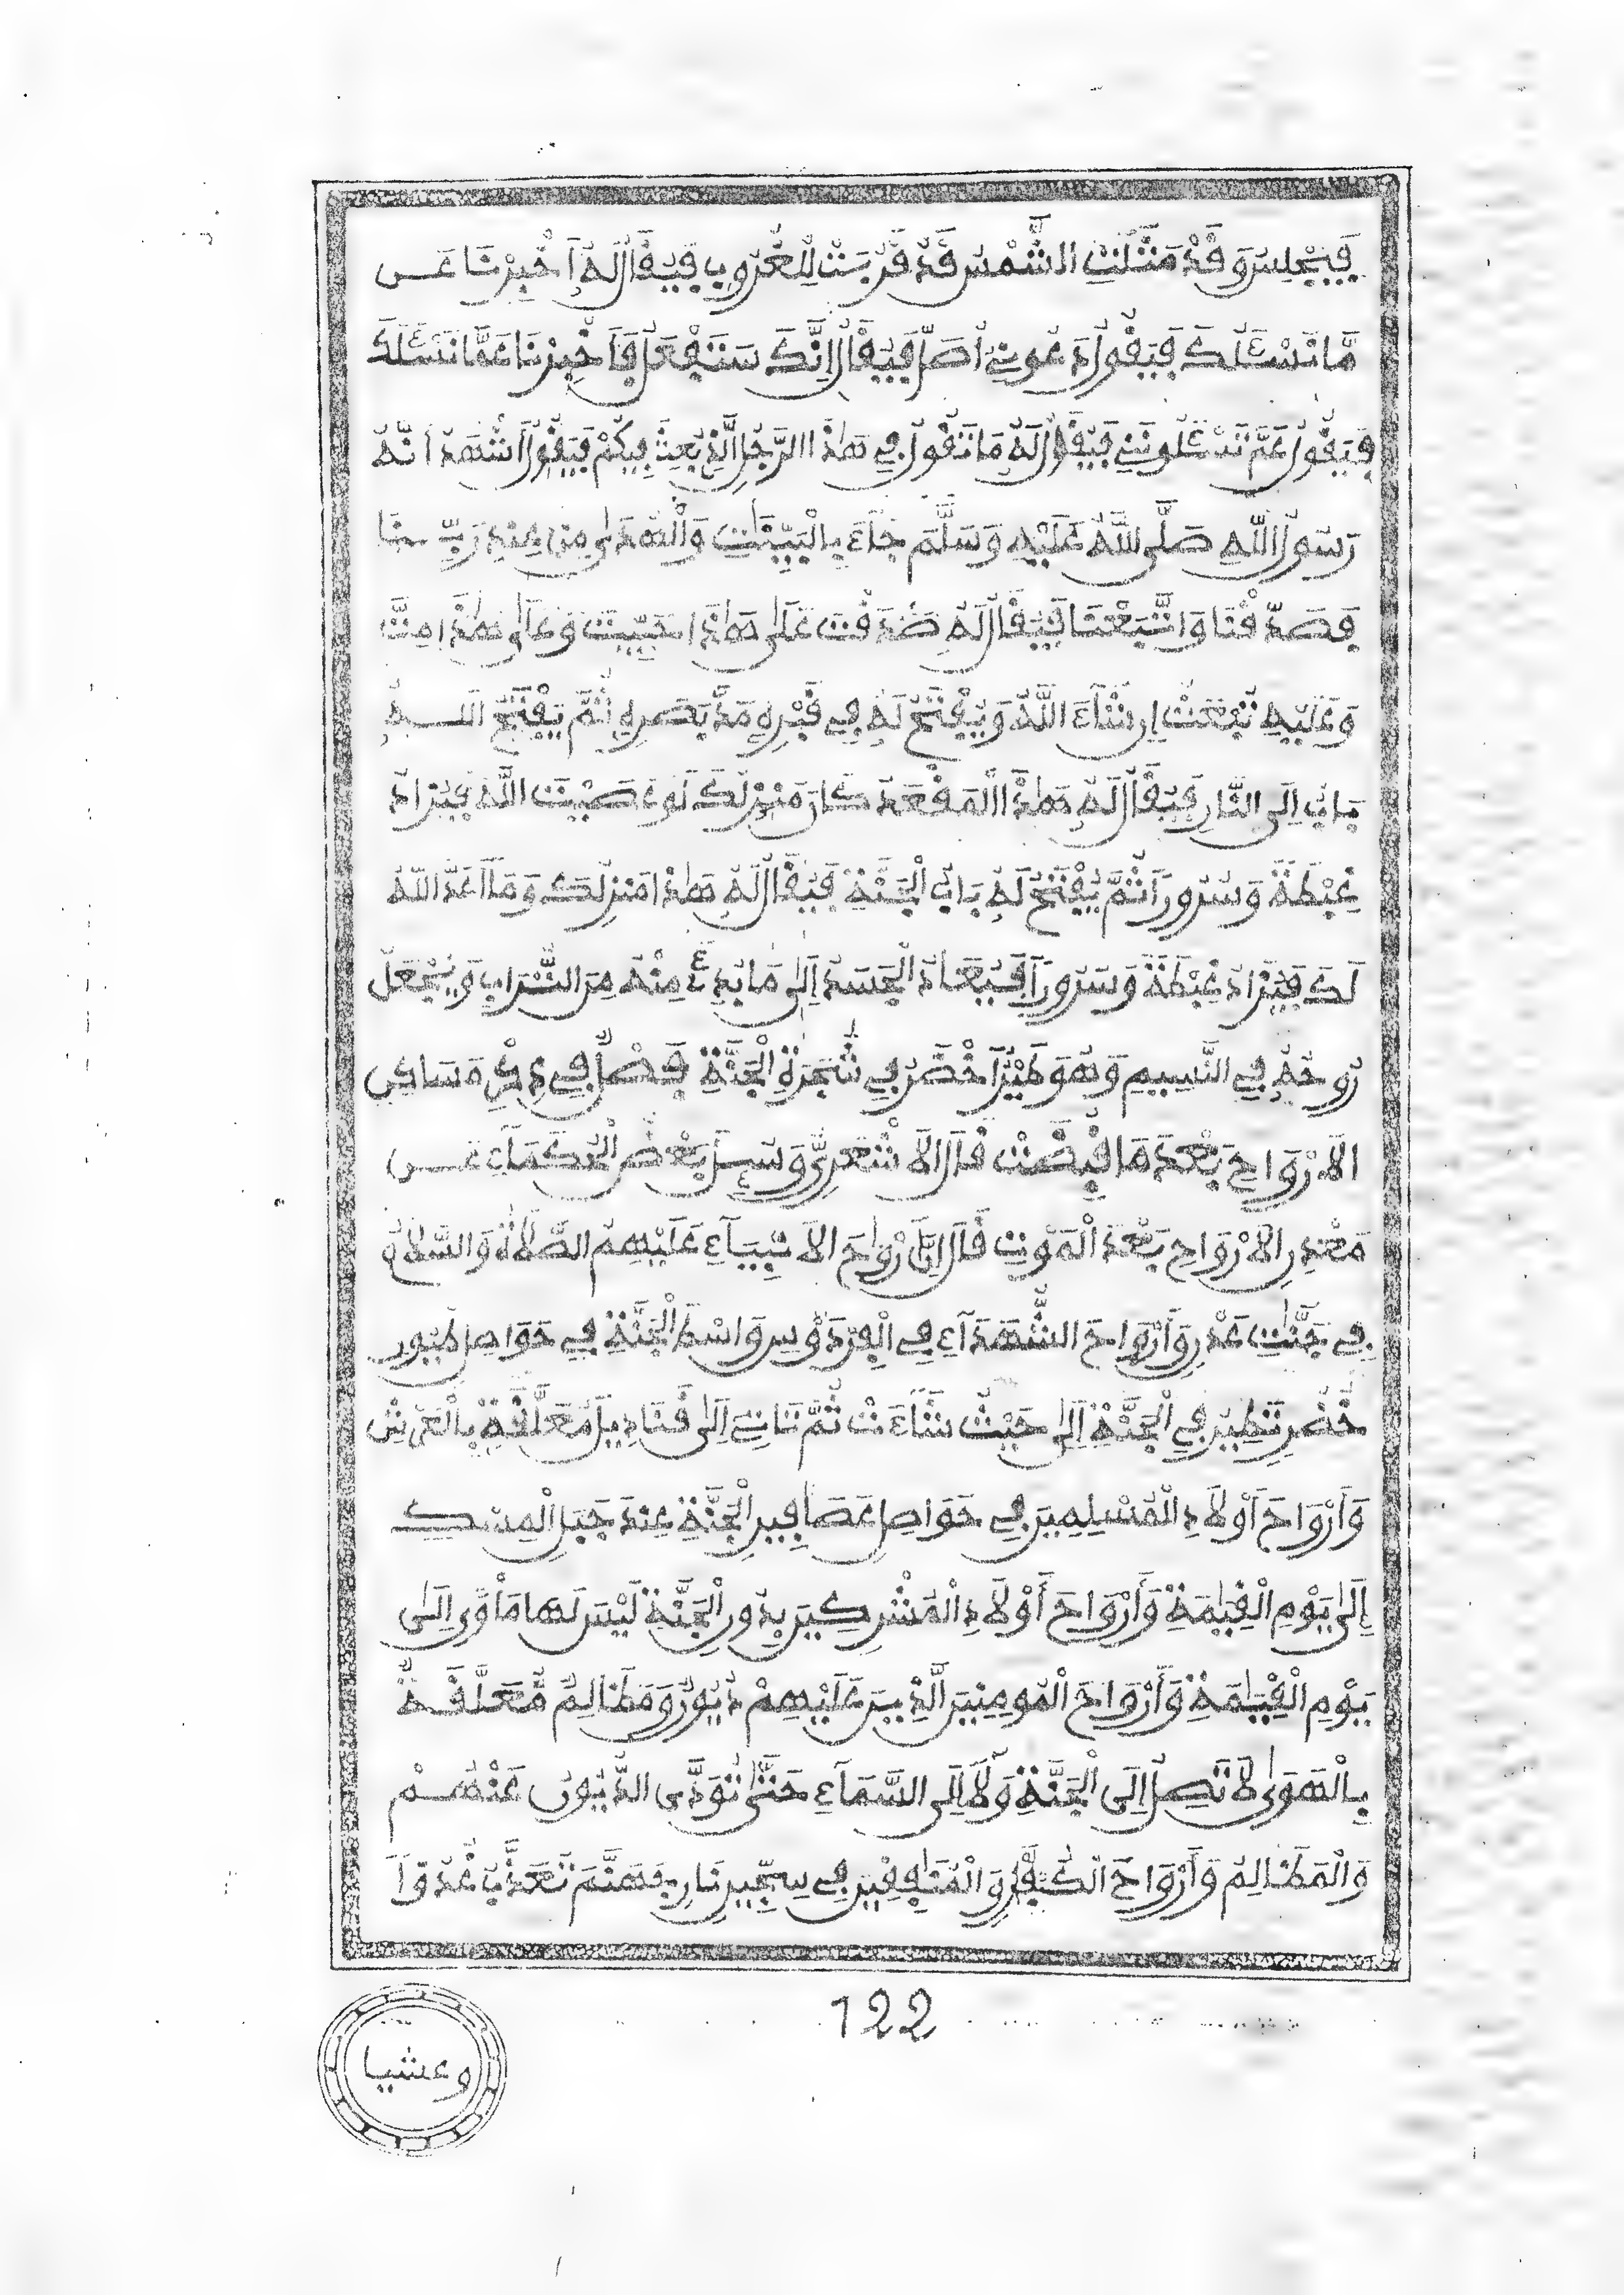 فَيَجْلِسُ وَقَدْ مَثَلَتِ الشَّمْسُ قَدْ قَرُبَتْ لِلْغُرُوبِ فَيُقَالُ لَهُ أَخْبِرْنَا عَن
مَّا نَسْـَٔلُكَ فَيَقُولُ دَعُونِي أُصَلِّ فَيُقَالُ إِنَّكَ سَتَفْعَلُ فَأَخْبِرْنَا عَمَّا نَسْـَٔلُكَ
فَيَقُولُ عَمَّ تَسْـَٔلُونَنِي فَيُقَالُ لَهُ مَا تَقُولُ فِي هَٰذَا الرَّجُلِ الَّذِي بُعِثَ فِيكُمْ فَيَقُولُ أَشْهَدُ أَنَّهُ
رَسُولُ اللَّهِ صَلَّى اللَّهُ عَلَيْهِ وَسَلَّمَ جَآءَ بِالْبَيِّنَٰتِ وَالْهُدَىٰ مِنْ عِنْدِ رَبِّنَا
فَصَدَّقْنَا وَاتَّبَعْنَا فَيُقَالُ لَهُ صَدَقْتَ عَلَىٰ هَٰذَا حَيِيتَ وَعَلَىٰ هَٰذَا مِتَّ
وَعَلَيْهِ تُبْعَثُ إِن شَآءَ اللَّهُ وَيُفْتَحُ لَهُ فِي قَبْرِهِ مَدَّ بَصَرِهِ ثُمَّ يُفْتَحُ لَهُ
بَابٌ إِلَى النَّارِ فَيُقَالُ لَهُ هَٰذَا الْمَقْعَدُ كَانَ مَنْزِلَكَ لَوْ عَصَيْتَ اللَّهَ فَيَزْدَادُ
غِبْطَةً وَسُرُورًا ثُمَّ يُفْتَحُ لَهُ بَابُ الْجَنَّةِ فَيُقَالُ لَهُ هَٰذَا مَنْزِلُكَ وَمَا أَعَدَّ اللَّهُ
لَكَ فَيَزْدَادُ غِبْطَةً وَسُرُورًا فَيُعَادُ الْجَسَدُ إِلَىٰ مَا بُدِئَ مِنْهُ مِنَ التُّرَابِ وَيُجْعَلُ
رُوحُهُ فِي النَّسِيمِ وَهُوَ طَيْرٌ أَخْضَرُ فِي شَجَرَةِ الْجَنَّةِ فَصْلٌ فِي ذِكْرِ مَسَاكِنِ
الْأَرْوَاحِ بَعْدَ مَا قُبِضَتْ قَالَ الْأَشْعَرِيُّ وَسُئِلَ بَعْضُ الْحُكَمَآءِ عَن
مَعْدِنِ الْأَرْوَاحِ بَعْدَ الْمَوْتِ قَالَ إِنَّ أَرْوَاحَ الْأَنْبِيَآءِ عَلَيْهِمُ الصَّلَاةُ وَالسَّلَامُ
فِي جَنَّٰتِ عَدْنٍ وَأَرْوَاحَ الشُّهَدَآءِ فِي الْفِرْدَوْسِ وَاسْطَ الْجَنَّةِ فِي حَوَاصِلِ طُيُورٍ
خُضْرٍ تَطِيرُ فِي الْجَنَّةِ إِلَىٰ حَيْثُ شَآءَتْ ثُمَّ تَاتِي إِلَىٰ قَنَادِيلَ مُعَلَّقَةٍ بِالْعَرْشِ
وَأَرْوَاحَ أَوْلَادِ الْمُسْلِمِينَ فِي حَوَاصِلِ عَصَافِيرِ الْجَنَّةِ عِنْدَ جَبَلِ الْمِسْكِ
إِلَىٰ يَوْمِ الْقِيَٰمَةِ وَأَرْوَاحَ أَوْلَادِ الْمُشْرِكِينَ يَدُورُ الْجَنَّةَ لَيْسَ لَهَا مَأْوًى إِلَىٰ
يَوْمِ الْقِيَٰمَةِ وَأَرْوَاحَ الْمُومِنِينَ الَّذِينَ عَلَيْهِمْ دُيُونٌ وَمَظَالِمُ مُّعَلَّقَةٌ
بِالْهَوَىٰ لَا تَصِلُ إِلَى الْجَنَّةِ وَلَا إِلَى السَّمَآءِ حَتَّىٰ تُوَدَّى الدُّيُونُ عَنْهُمْ
وَالْمَظَالِمُ وَأَرْوَاحَ الْكُفَّارِ وَالْمُنَٰفِقِينَ فِي سِجِّينِ نَارِ جَهَنَّمَ تُعَذَّبُ غُدُوًّا
122
وعشيا